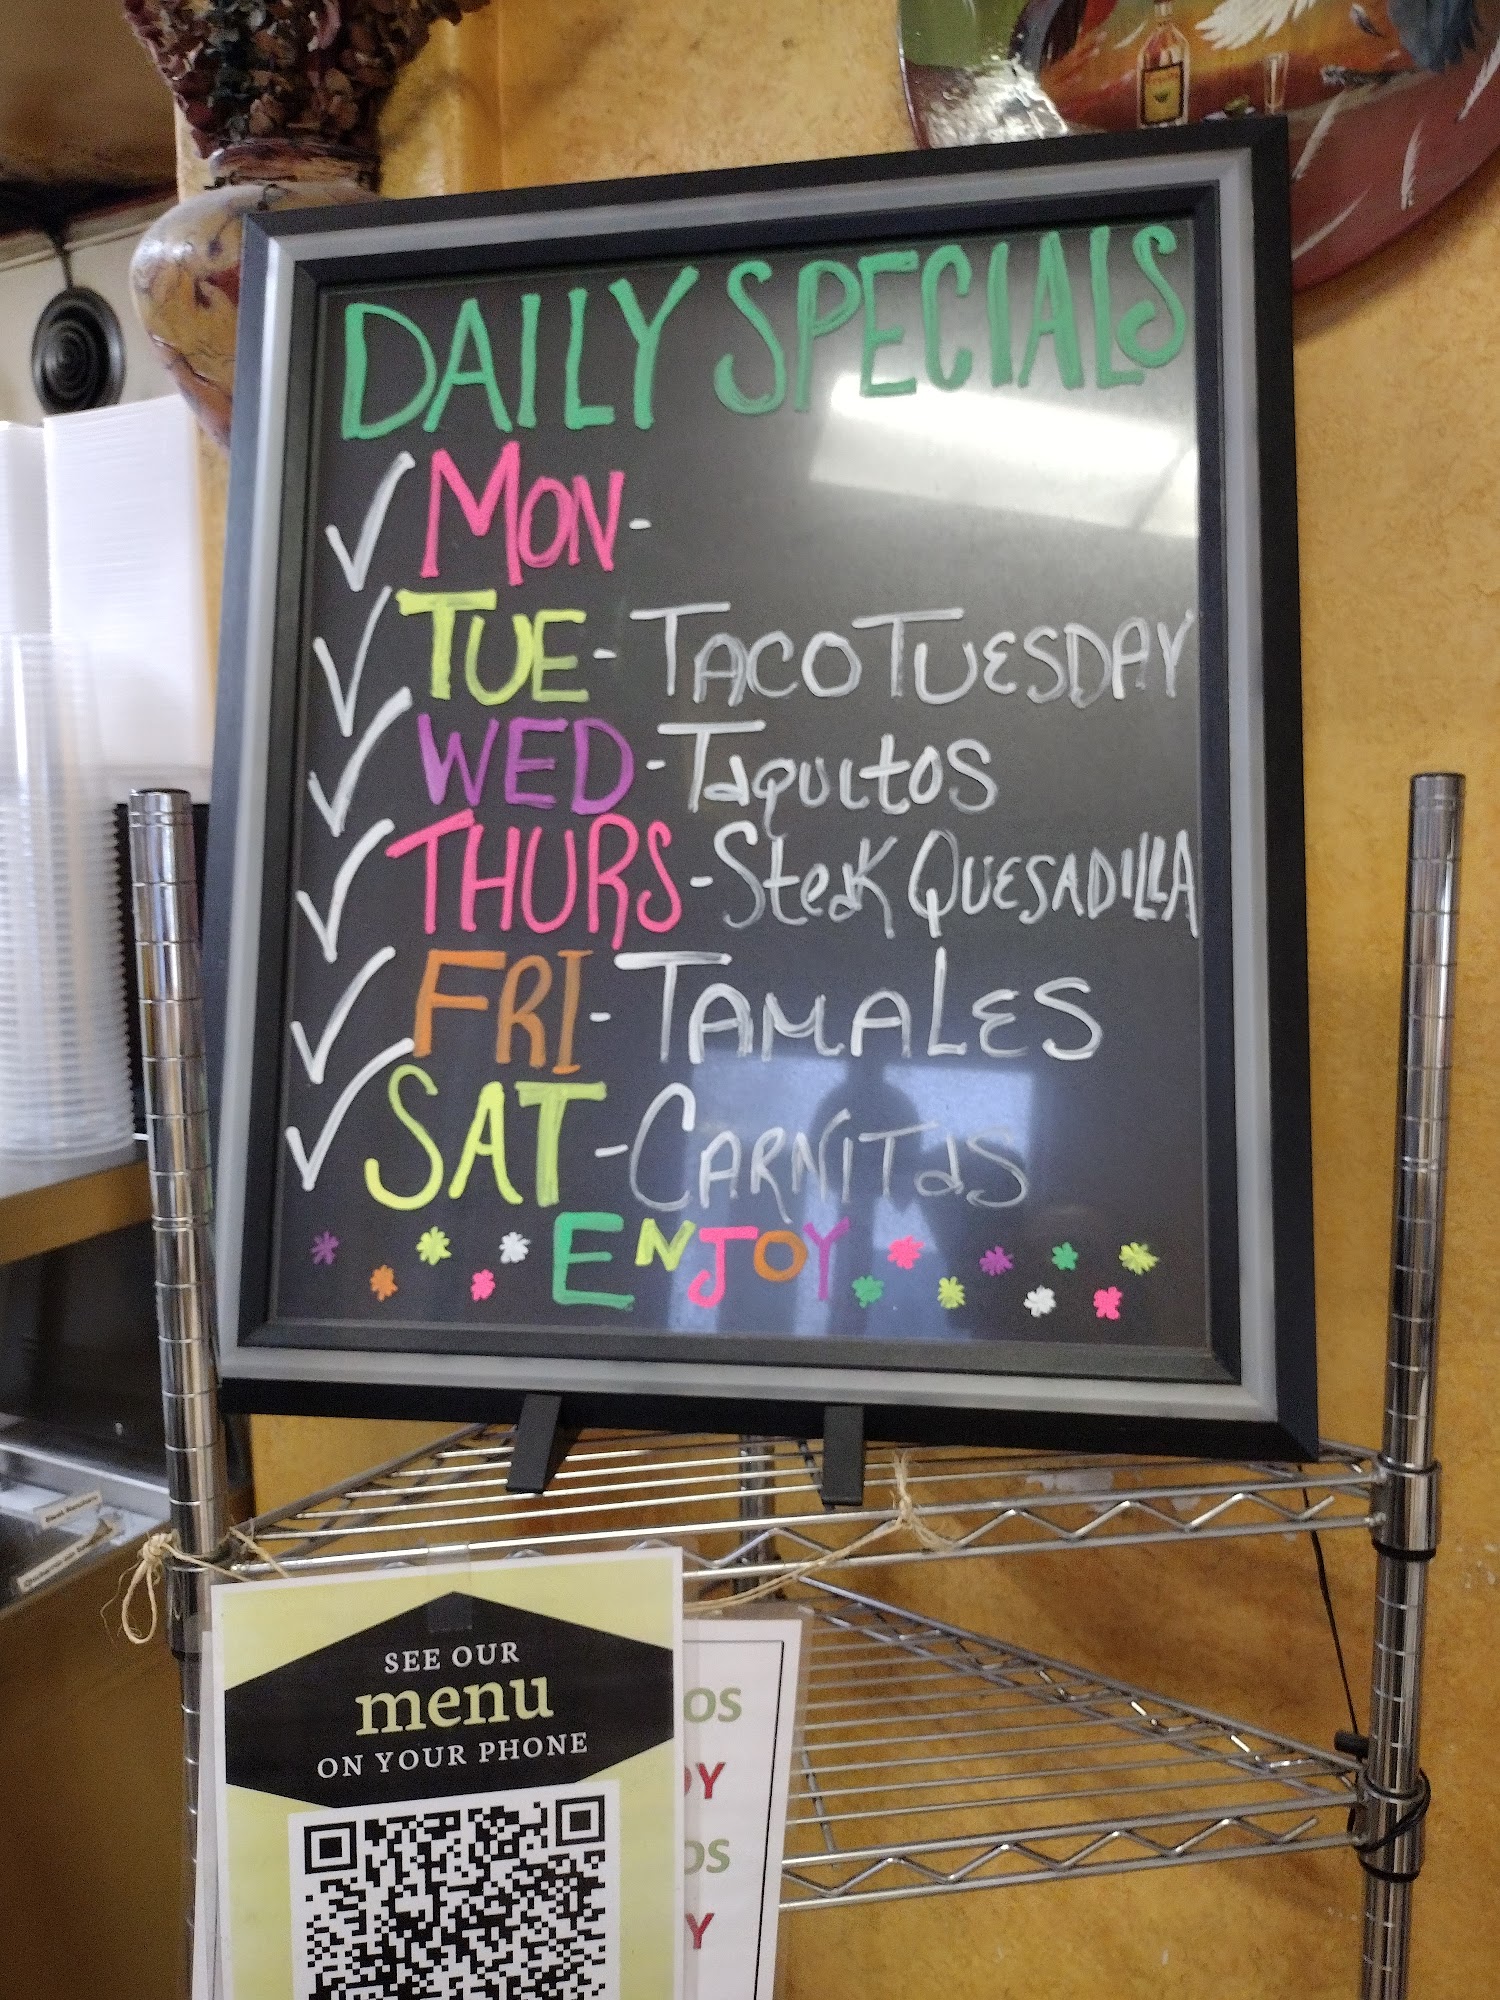 DAILY SPECIALS
✓ MON-
✓ TUE - TACO TUESDAY
✓ WED - Taquitos
✓ THURS - Steak QUESADILLA
✓ FRI - TAMALES
✓ SAT - CARNITaS
ENJOY
SEE OUR
menu
ON YOUR PHONE
OS
Y
OS
Y